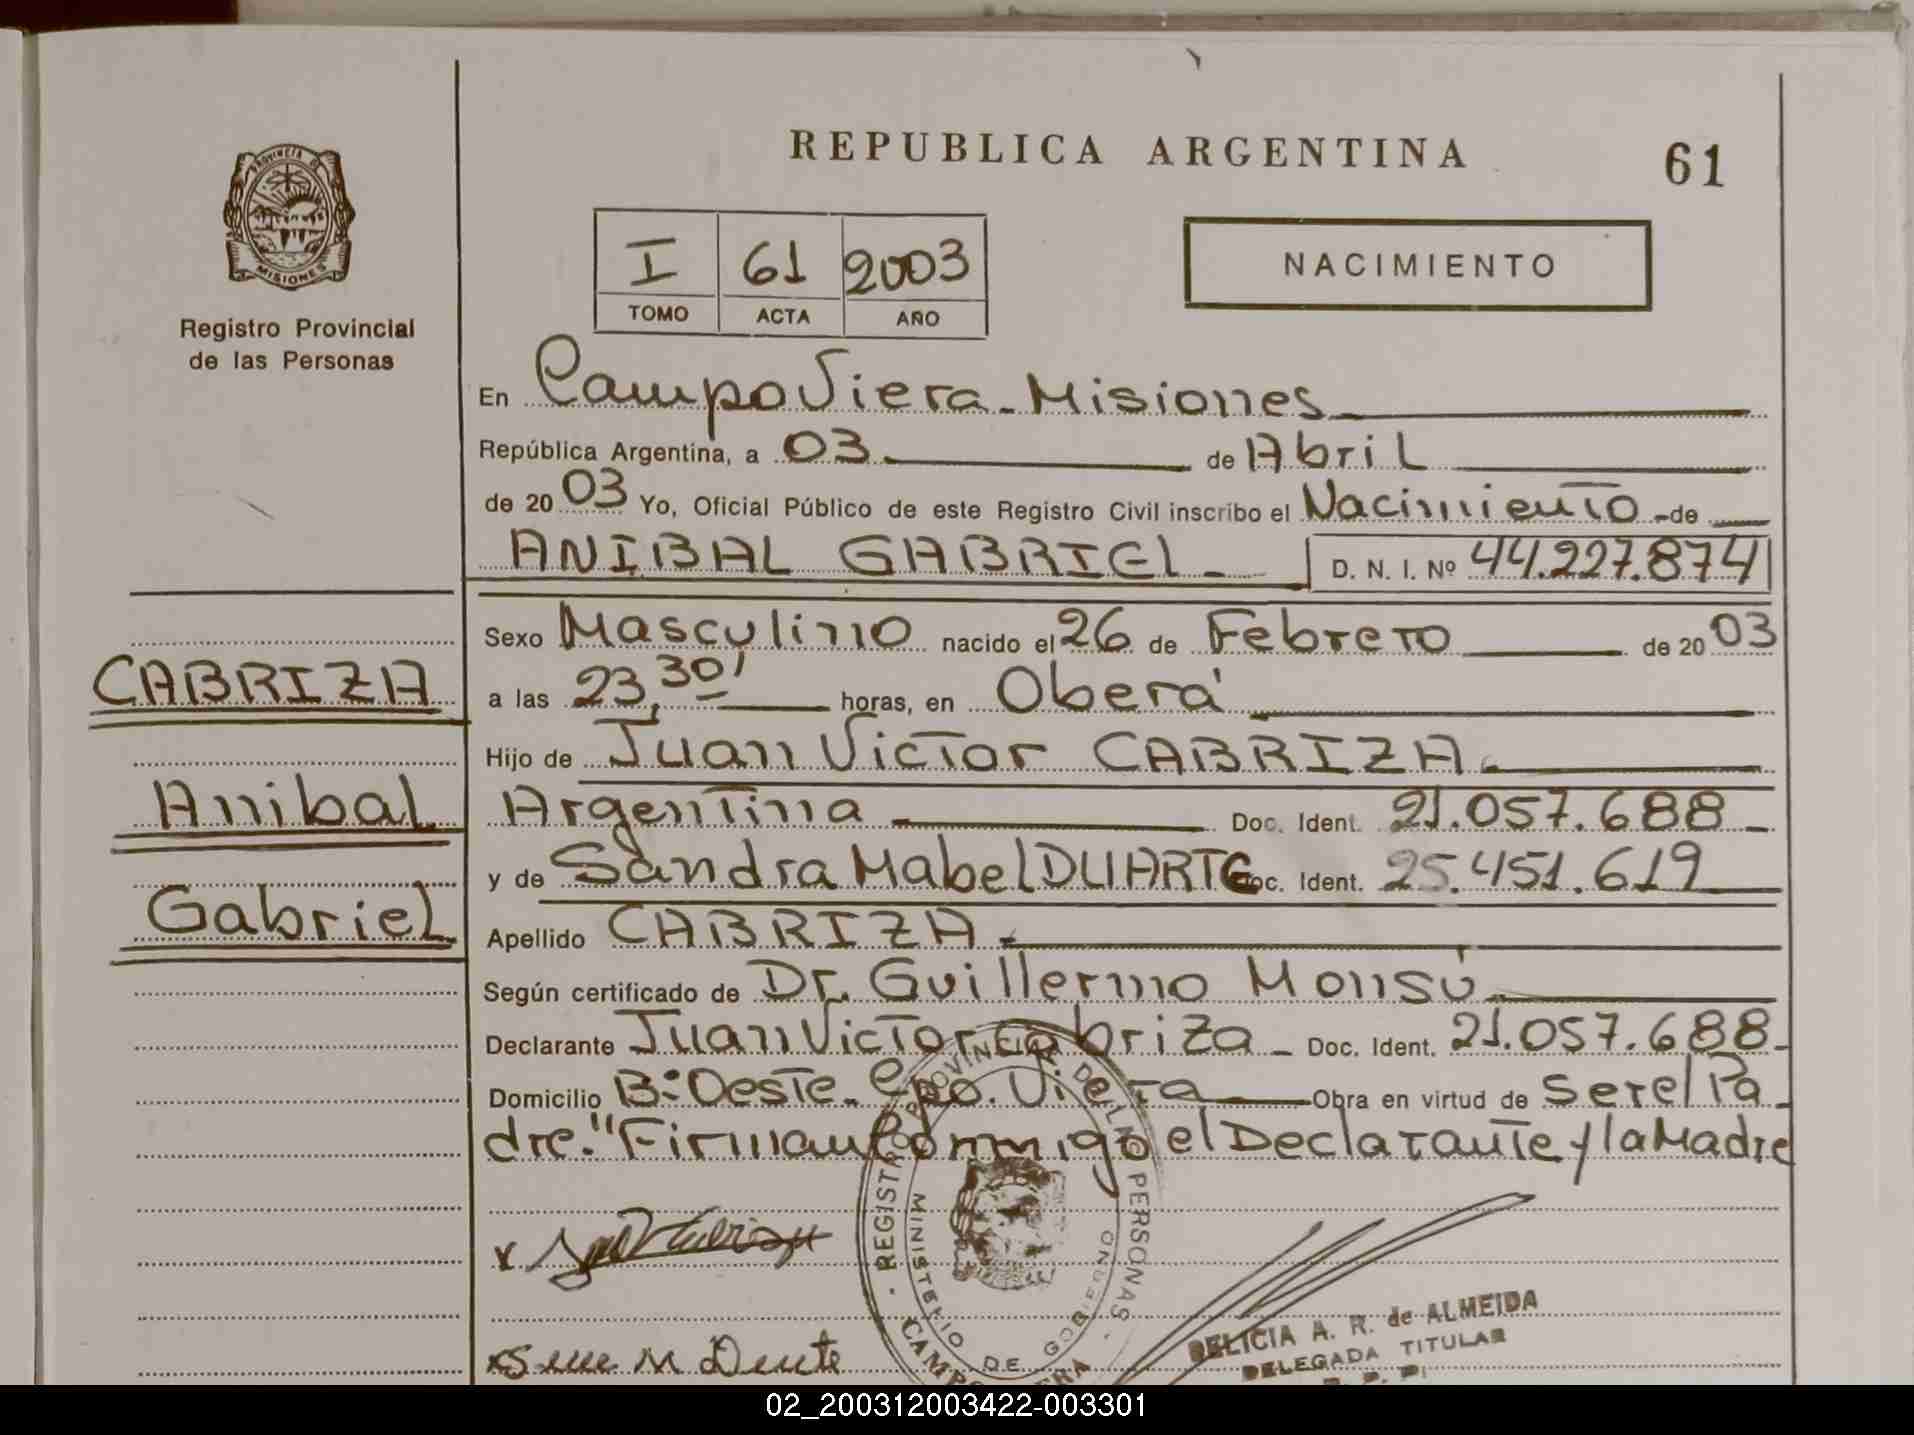 REPUBLICA ARGENTINA
61
PROVINCIA DE
MISIONES
Registro Provincial
de las Personas
I 61 2003
TOMO ACTA AÑO
NACIMIENTO
En Campo Viera - Misiones
República Argentina, a 03 de Abril
de 2003 Yo, Oficial Público de este Registro Civil inscribo el Nacimiento - de
ANIBAL GABRIEL - D. N. I. Nº 44.227.874
Sexo Masculino nacido el 26 de Febrero de 2003
CABRIZA
a las 23,30' horas, en Oberá
Hijo de Juan Victor CABRIZA.
Anibal
Argentina Doc. Ident. 21.057.688
y de Sandra Mabel DUARTE Doc. Ident. 25.451.619
Gabriel
Apellido CABRIZA.
Según certificado de Dr. Guillermo Monsú
Declarante Juan Victor Cabriza - Doc. Ident. 21.057.688-
Domicilio Bº Oeste - Cpo. Viera Obra en virtud de Ser el Pa
dre." Firman Conmigo el Declarante y la Madre
REGISTRO PROVINCIAL DE LAS PERSONAS
MINISTERIO DE GOBIERNO
CAMPO VIERA
DELICIA A. R. de ALMEIDA
DELEGADA TITULAR
02_200312003422-003301